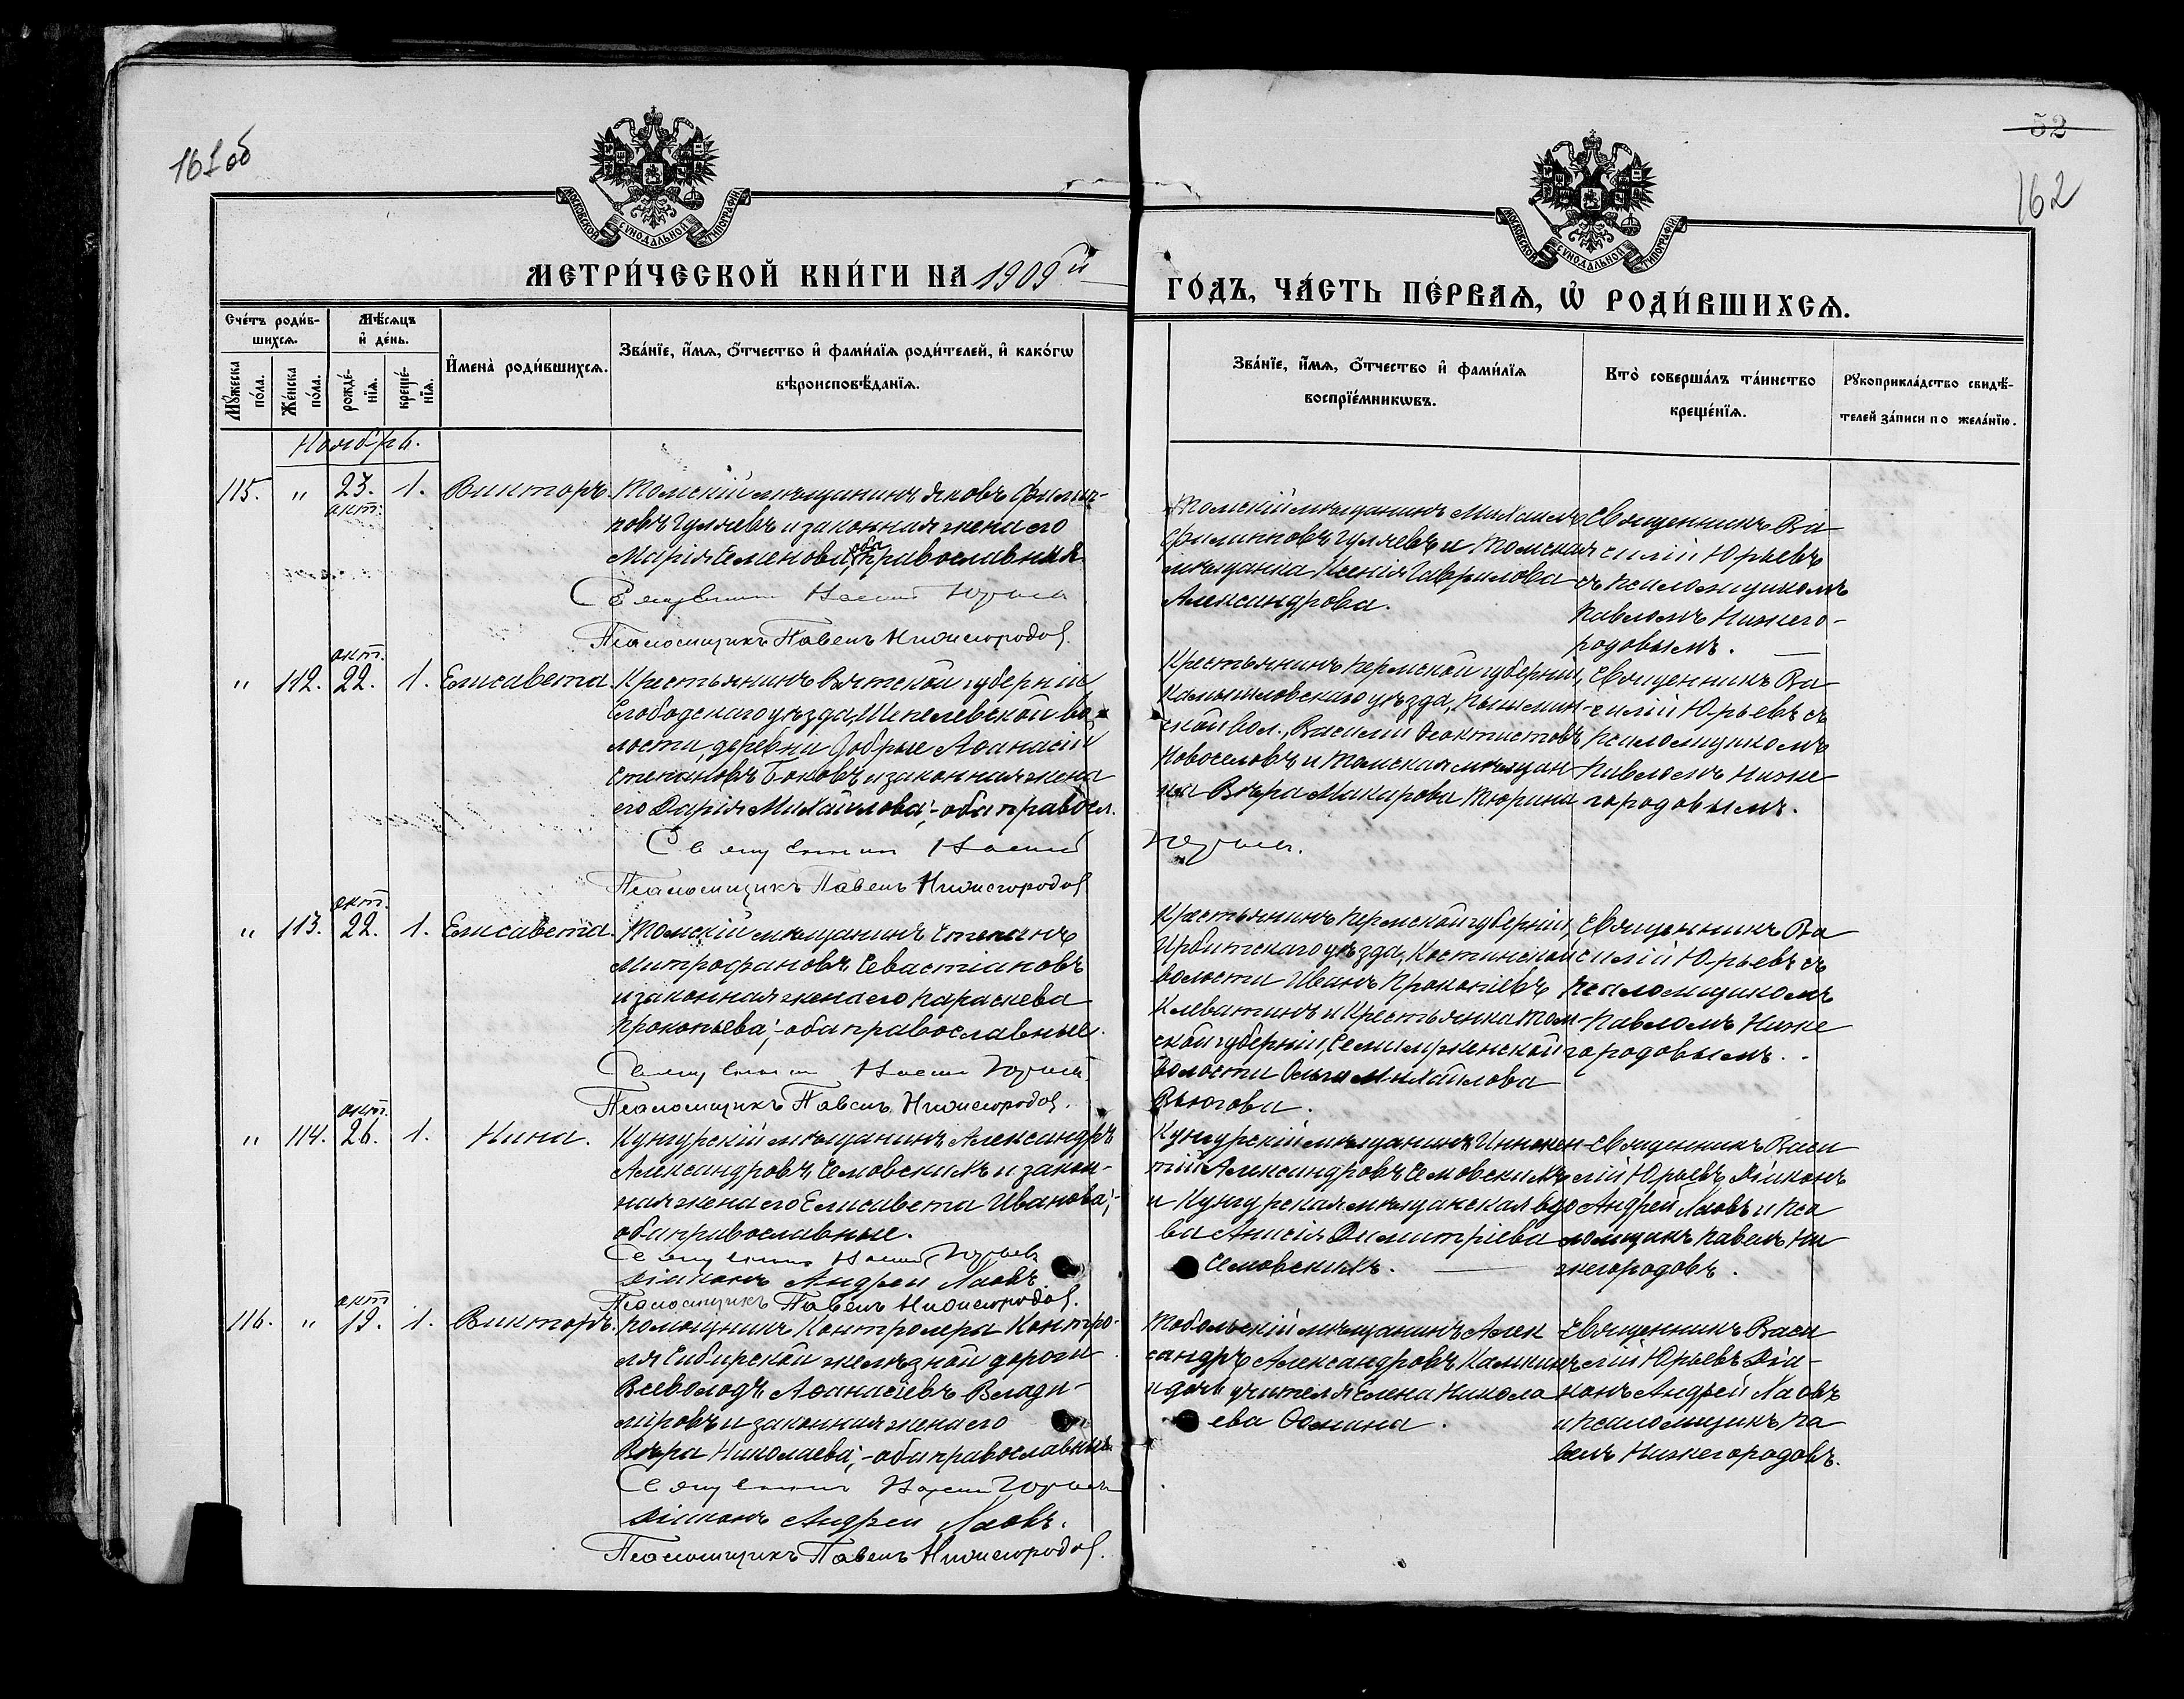 161 об
52
162
МОСКОВСКОЙ СѴНОДАЛЬНОЙ ТИПОГРАФІИ
МОСКОВСКОЙ СѴНОДАЛЬНОЙ ТИПОГРАФІИ
МЕТРИ́ЧЕСКОЙ КНИ́ГИ НА 1909й
ГО́ДЪ, ЧА́СТЬ ПЕ́РВАѦ, Ѡ҆ РОДИ́ВШИХСѦ.
Сче́тъ роди́в-
шихсѧ.
Мѣ́сѧцъ
и҆ де́нь.
Мꙋ́жеска
по́ла.
Же́нска
по́ла.
рожде́-
нїѧ.
креще́-
нїѧ.
И҆мена̀ роди́вшихсѧ.
Зва́нїе, и҆́мѧ, ѻ҆́тчество и҆ фами́лїѧ роди́телей, и҆ како́гѡ
вѣроисповѣ́данїѧ.
Зва́нїе, и҆́мѧ, ѻ҆́тчество и҆ фами́лїѧ
воспрїе́мникѡвъ.
Кто̀ соверша́лъ та́инство
креще́нїѧ.
Рꙋкоприкла́дство свидѣ́-
телей за́писи по жела́нїю.
Ноябрь.
115. " 23. 1. Викторъ.
окт.
Томскій мѣщанинъ Яковъ Филип-
повъ Гуляевъ и законная жена его
Марія Семенова, оба православные
Священникъ Василій Юрьевъ
Псаломщикъ Павелъ Нижегородовъ.
Томскій мѣщанинъ Михаилъ
Филипповъ Гуляевъ и Томская
мѣщанка Ксенія Гаврилова
Александрова.
Священникъ Ва-
силій Юрьевъ
съ псаломщикомъ
Павломъ Нижего-
родовымъ.
окт.
" 112. 22. 1. Елисавета.
Крестьянинъ Вятской губерніи
Слободскаго уѣзда, Шепелевской во-
лости, деревни Добрые Аѳанасій
Степановъ Боковъ и законная жена
его Дарія Михайлова; - оба правосл.
Священникъ Василій
Юрьевъ.
Псаломщикъ Павелъ Нижегородовъ
Крестьянинъ Пермской губерніи,
Камышловскаго уѣзда, Пышмин-
ской вол., Василій Ѳеоктистовъ
Новоселовъ и Томская мѣщан-
ка Вѣра Макарова Тюрина
Священникъ Ва-
силій Юрьевъ съ
псаломщикомъ
Павломъ Ниже-
городовымъ.
окт.
" 113. 22. 1. Елисавета.
Томскій мѣщанинъ Степанъ
Митрофановъ Севастіановъ
и законная жена его Параскева
Прокопьева; - оба православные.
Священникъ Василій Юрьевъ
Псаломщикъ Павелъ Нижегородовъ.
Крестьянинъ Пермской губерніи,
Ирбитскаго уѣзда, Костинской
волости Иванъ Прокопіевъ
Клеватинъ и Крестьянка Том-
ской губерніи, Семилуженской
волости Ольга Михайлова
Вьюгова.
Священникъ Ва
силій Юрьевъ съ
псаломщикомъ
Павломъ Ниже
городовымъ.
окт.
" 114. 26. 1. Нина.
Кунгурскій мѣщанинъ Александръ
Александровъ Семовскихъ и закон-
ная жена его Елисавета Иванова; -
оба православные.
Священникъ Василій Юрьевъ
Діаконъ Андрей Лаовъ.
Псаломщикъ Павелъ Нижегородовъ.
Кунгурскій мѣщанинъ Иннокен-
тій Александровъ Семовскихъ
и Кунгурская мѣщанская вдо
ва Анисія Димитріева
Семовскихъ.
Священникъ Васи
лій Юрьевъ, Діаконъ
Андрей Лаовъ и Пса
ломщикъ Павелъ Ни
жегородовъ.
окт
116. " 12. 1. Викторъ.
Помощникъ Контролера Контро-
ля Сибирской желѣзной дороги
Всеволодъ Аѳанасіевъ Влади-
міровъ и законная жена его
Вѣра Николаева; - оба православные.
Священникъ Василій Юрьевъ
Діаконъ Андрей Лаовъ.
Псаломщикъ Павелъ Нижегородовъ.
Тобольскій мѣщанинъ Алек
сандръ Александровъ Калкинъ
и дочь учителя Елена Никола
ева Ѳомина.
Священникъ Васи
лій Юрьевъ Діа-
конъ Андрей Лаовъ
и псаломщикъ Па
велъ Нижегородовъ.